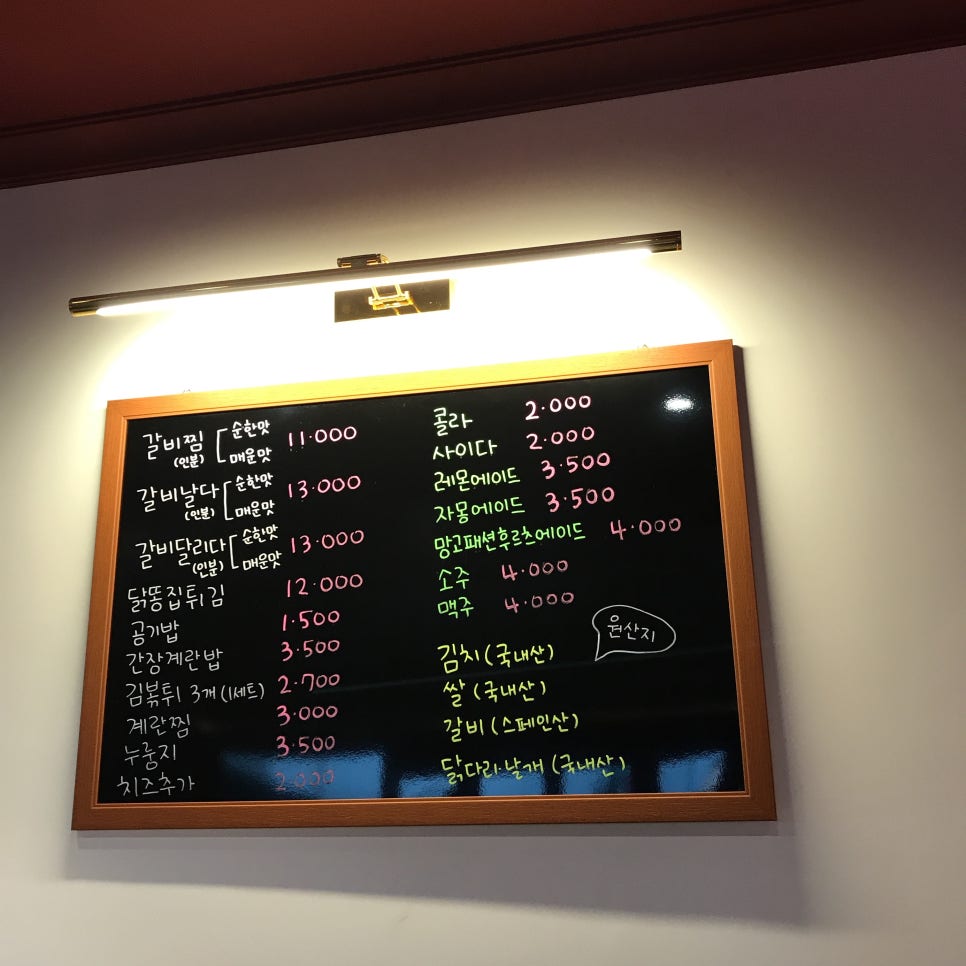 갈비찜 (인분) 순한맛 매운맛 11.000
갈비날다 (인분) 순한맛 매운맛 13.000
갈비달리다 (인분) 순한맛 매운맛 13.000
닭똥집튀김 12.000
공기밥 1.500
간장계란밥 3.500
김볶튀 3개 (1세트) 2.700
계란찜 3.000
누룽지 3.500
치즈추가 2.000
콜라 2.000
사이다 2.000
레몬에이드 3.500
자몽에이드 3.500
망고패션후르츠에이드 4.000
소주 4.000
맥주 4.000
원산지
김치 (국내산)
쌀 (국내산)
갈비 (스페인산)
닭다리·날개 (국내산)